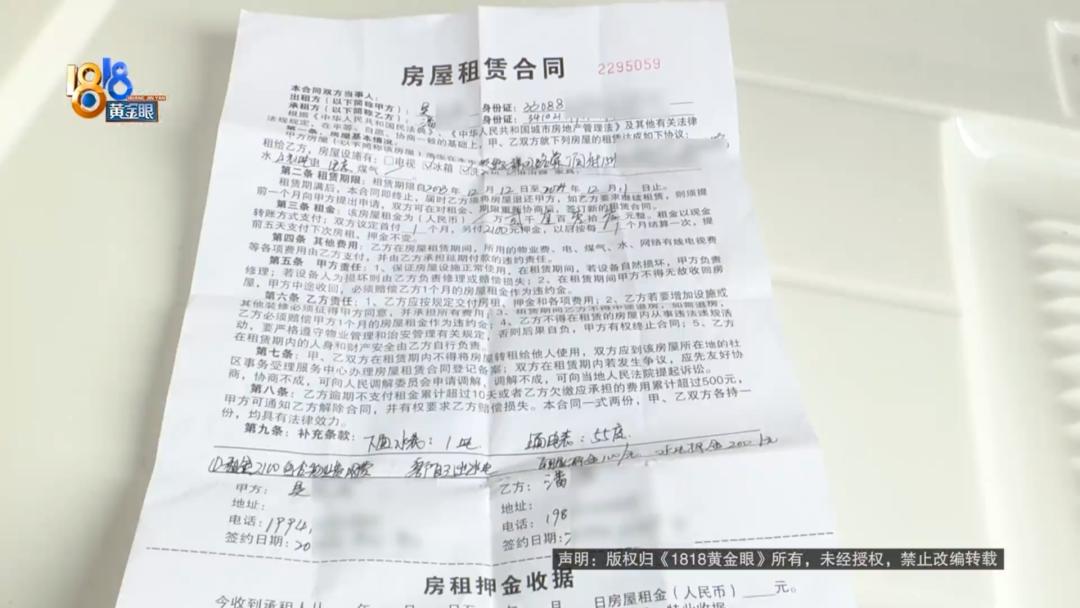 1818
黄金眼
房屋租赁合同 2295059
本合同双方当事人:
出租方(以下简称甲方): 吴 身份证: 33088
承租方(以下简称乙方): 潘 身份证: 341021
根据《中华人民共和国民法典》、《中华人民共和国城市房地产管理法》及其有关法律
法规规定,在平等、自愿、协商一致的基础上,甲、乙双方就下列房屋的租赁达成如下协议:
第一条、房屋基本情况:
甲方房屋(以下简称该房屋)
租给乙方,房屋设施有:□电视 ☑冰箱
水 电 煤气
第二条 租赁期限:租赁期限自2023年12月12日至2024年12月11日止。
租赁期满后,本合同即终止,届时乙方须将房屋退还甲方,如乙方要求继续租赁,则须提
前一个月向甲方提出申请,双方可在对租金、期限重新协商后,签订新的租赁合同。
第三条 租金:该房屋租金为(人民币) 万 贰仟 壹佰 零拾 元整。租金以现金
转账方式支付;双方议定首付1个月,另付2100元押金,以后按每 个月结算一次,提
前五天支付下次房租,押金不变。
第四条 其他费用:乙方在房屋租赁期间,所用的物业费、电、煤气、水、网络有线电视费
等各项费用由乙方支付,并由乙方承担延期付款的违约责任。
第五条 甲方责任:1、保证房屋设施正常使用,在租赁期间,若设备自然损坏,甲方负责
修理;若设备人为损坏则由乙方负责修理或赔偿损失;2、在租赁期间甲方不得无故收回房
屋,甲方中途收回,必须赔偿乙方1个月的房屋租金作为违约金。
第六条 乙方责任:1、乙方应按规定交付房租、押金和各项费用;2、乙方若要增加设施或
其他装修必须征得甲方同意,并承担所有费用;3、租赁期间乙方不得中途退房,如需退房,
乙方必须赔偿甲方1个月的房屋租金作为违约金;4、乙方不得在租赁的房屋内从事违法违规活
动,要严格遵守物业管理和治安管理有关规定,否则后果自负,甲方有权终止合同;5、乙方
在租赁期内的人身和财产安全由乙方自行负责。
第七条:甲、乙双方在租赁期内不得将房屋转租给他人使用,双方应到该房屋所在地的社
区事务受理服务中心办理房屋租赁合同登记备案;双方在租赁期内若发生争议,应先友好协
商,协商不成,可向人民调解委员会申请调解,调解不成,可向当地人民法院提起诉讼。
第八条:乙方逾期不支付租金累计超过10天或者乙方欠缴应承担的费用累计超过500元,
甲方可通知乙方解除合同,并有权要求乙方赔偿损失。本合同一式两份,甲、乙双方各持一
份,均具有法律效力。
第九条:补充条款: 水表:1吨 电表:55度
①租金2100
甲方:吴 乙方:潘
地址: 地址:
电话:1994 电话:198
签约日期:20 签约日期:
声明:版权归《1818黄金眼》所有,未经授权,禁止改编转载
房租押金收据
今收到承租人 年 月 日房屋租金(人民币) 元。